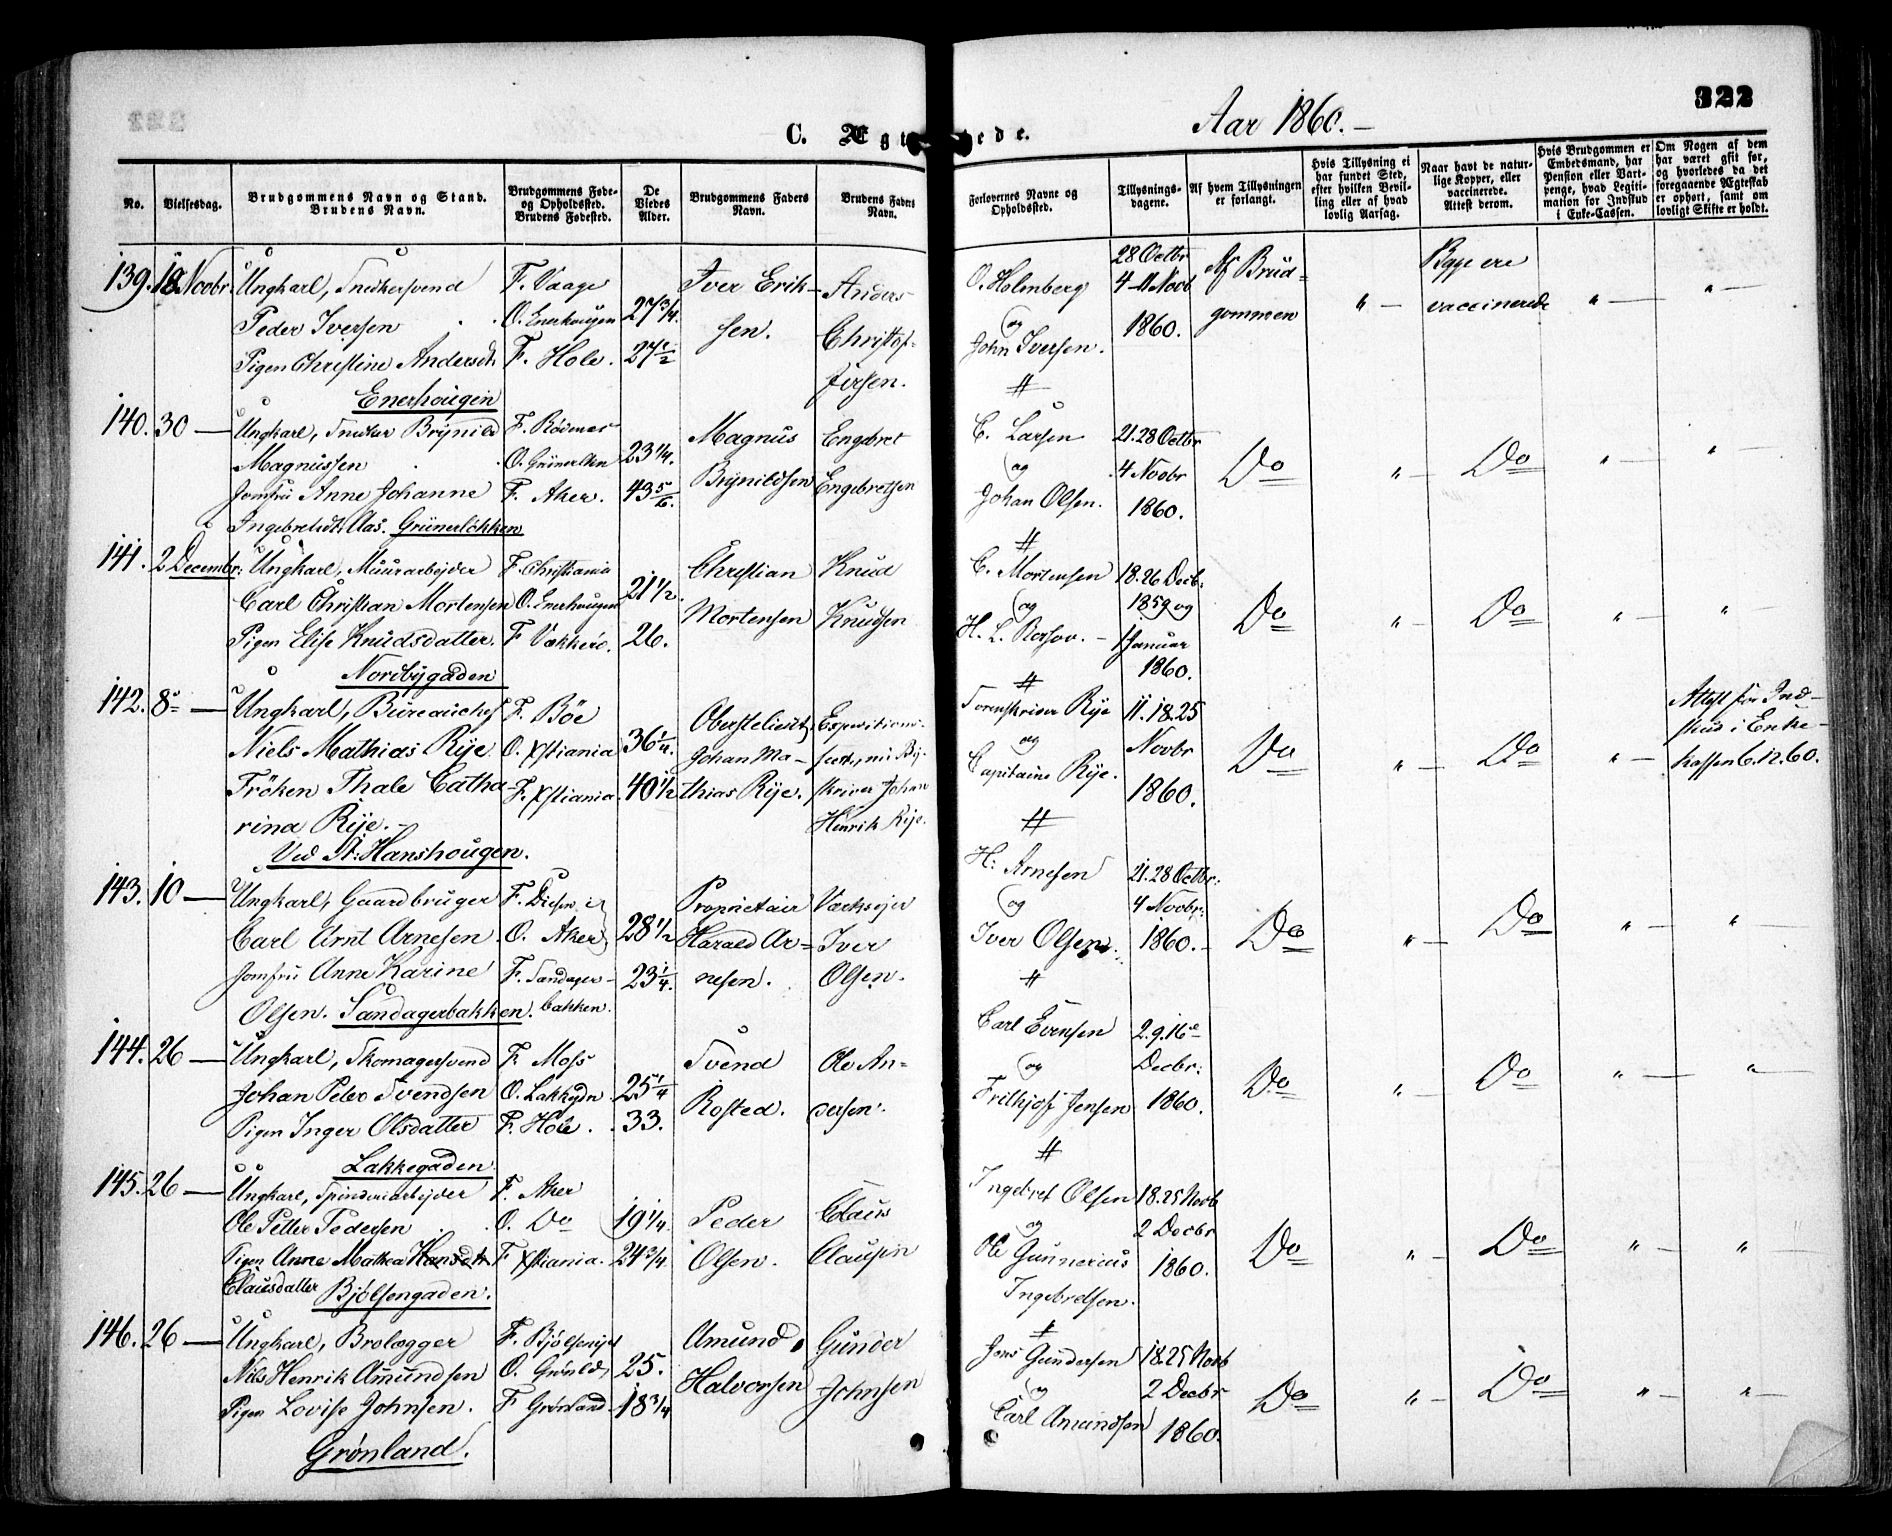 322
Aar 1860.
C. Ægt ede.
No.
Vielsesdag.
Brudgommens Navn og Stand.
Brudens Navn.
Brudgommens Føde-
og Opholdssted.
Brudens Fødested.
De
Viedes
Alder.
Brudgommens Faders
Navn.
Brudens Faders
Navn.
Forlovernes Navne og
Opholdssted.
Tillysnings-
dagene.
Af hvem Tillysningen
er forlangt.
Hvis Tillysning ei
har fundet Sted,
efter hvilken Bevil-
ling eller af hvad
lovlig Aarsag.
Naar havt de natur-
lige Kopper, eller
vaccinerede.
Attest derom.
Hvis Brudgommen er
Embedsmand, har
Pension eller Vart-
penge, hvad Legiti-
mation for Indskud
i Enke-Cassen.
Om Nogen af dem
har været gift før,
og hvorledes da det
foregaaende Ægteskab
er ophørt, samt om
lovligt Skifte er holdt.
139. 18 Novbr. Ungkarl, Snedkersvend
Peder Iversen
Pigen Christine Andersdt.
Enerhougen
F. Vaage
O. Enerhougen
F. Hole.
27 3/4.
27 1/2
Iver Erik-
sen.
Anders
Christof-
fersen.
O. Holmberg
og
John Iversen.
28 Octbr
4-11 Novb
1860.
Af Brud-
gommen
" —
Begge ere
vaccinerede
" —
" —
140. 30 — Ungkarl, Snedker Brynild
Magnussen
Jomfru Anne Johanne
Ingebretsdt. Aas. Grünerløkken
F. Rødenes
O. Grünerløkn
F. Aker.
23 1/4.
43 5/6.
Magnus
Brynildsen
Engebret
Engebretsen
C. Larsen
og
Johan Olsen.
21. 28 Octbr
4 Novbr
1860.
Do
" —
Do
" —
" —
141. 2 Decembr: Ungkarl, Muurarbejder
Carl Christian Mortensen
Pigen Elise Knudsdatter.
Nordbygaden
F. Christiania
O. Enerhougen
F Vækkerø.
21 1/2.
26.
Christian
Mortensen
Knud
Knudsen
C. Mortensen
og
H. L. —
18. 26 Decb:
1859 og
1 Januar
1860.
Do
" —
Do
" —
" —
142. 8 — Ungkarl, Bureauchef
Niels Mathias Rye
Frøken Thale Catha-
rina Rye. -
Ved St: Hanshougen.
F. Bøe
O. Xstiania
F. Xstiania.
36 1/4.
40 1/2
Oberstelieut.
Johan Ma-
thias Rye.
Expeditions-
secr., nu By-
skriver Johan
Henrik Rye.
Sorenskriver Rye
og
Capitaine Rye.
11. 18. 25
Novbr
1860.
Do
" —
Do
" —
Attest for Ind-
skud i Enke-
kassen 6.12.60.
143. 10 — Ungkarl, Gaardbruger
Carl Arnt Arnesen
Jomfru Anne Karine
Olsen. Sandagerbakken.
F. Diesen i
O. Aker
F. Sandager-
bakken.
28 1/2
23 1/4.
Proprietair
Harald Ar-
nesen.
Værksejer
Iver
Olsen.
H: Arnesen
og
Iver Olsen.
21. 28 Octbr:
4 Novbr:
1860. -
Do
" —
Do
" —
" —
144. 26 — Ungkarl, Skomagersvend
Johan Peter Svendsen
Pigen Inger Olsdatter
Lakkegaden.
F. Moss
O. Lakkegdn
F. Hole.
25 1/4
33.
Svend
Rosted.
Ole An-
dersen.
Carl Evensen
og
Frithjof Jensen
2. 9. 16
Decbr:
1860.
Do
" —
Do
" —
" —
145. 26 — Ungkarl, Spinderiarbejder
Ole Petter Pedersen
Pigen Anne Mathea Hansdt
Clausdatter Bjølsengaden.
F. Aker
O. Do
F Xstiania.
19 1/4.
24 3/4.
Peder
Olsen.
Claus
Clausen
Ingebret Olsen
og
Ole Gunnerius
Ingebretsen.
18. 25 Novb
2 Decbr
1860.
Do
" —
Do
" —
" —
146. 26 — Ungkarl, Brolægger
Nils Henrik Amundsen
Pigen Lovise Johnsen.
Grønland.
F. Bjølsengd
O. Grønld
F Grønland
25.
18 3/4
Amund
Halvorsen
Gunder
Johnsen
Jens Gundersen
og
Carl Amundsen
18. 25 Novb
2 Decbr
1860.
Do
" —
Do
" —
" —